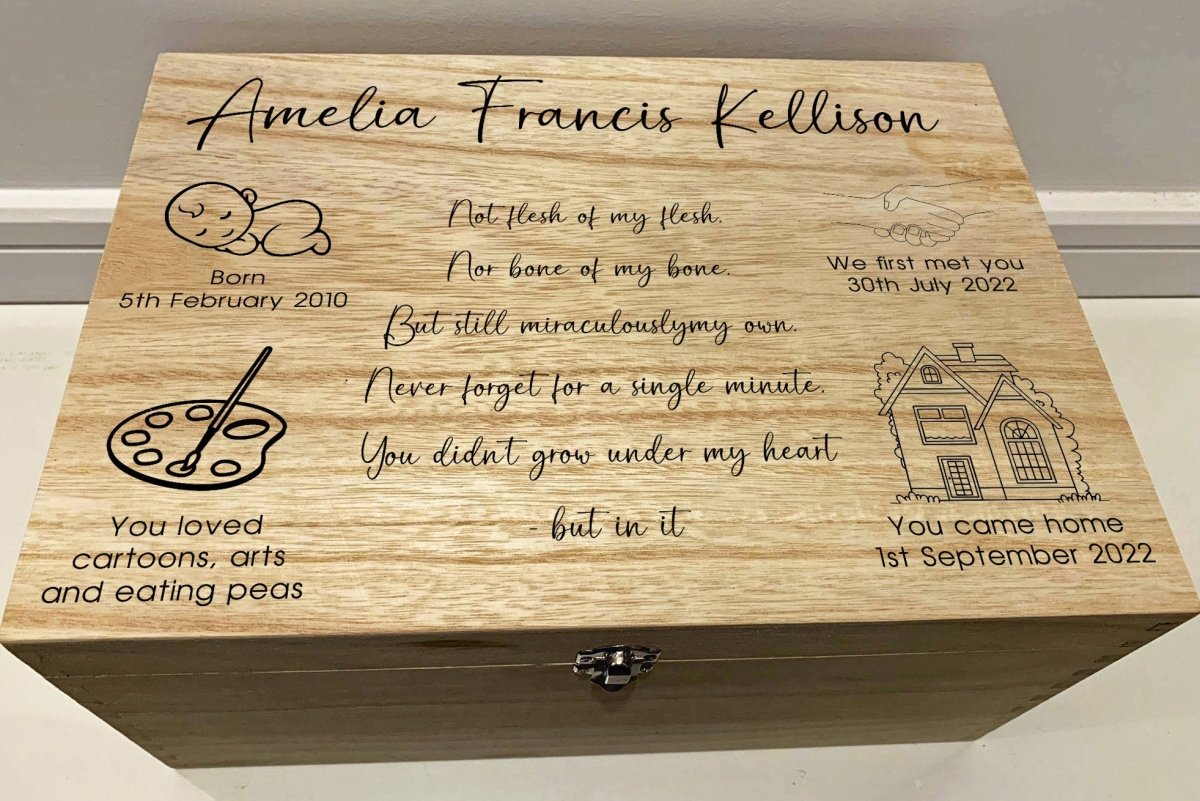 Amelia Francis Kellison
Born
5th February 2010
Not flesh of my flesh.
Nor bone of my bone.
But still miraculouslymy own.
Never forget for a single minute,
You didnt grow under my heart
- but in it
We first met you
30th July 2022
You loved
cartoons, arts
and eating peas
You came home
1st September 2022